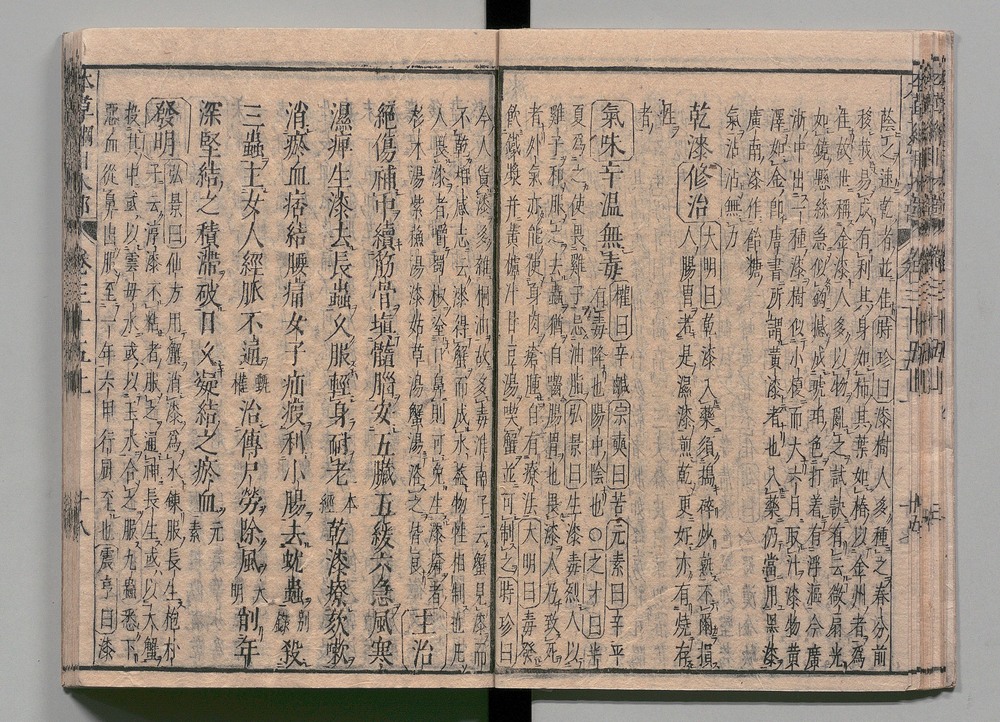 蔭之速乾者並佳時珍曰漆樹人多種之春分前
移栽易成有利其身如柿其葉如椿以金州者為
佳故世稱金漆人多以物亂之試訣有云微扇光
如鏡懸絲急似鉤撼成琥珀色打着有浮漚今廣
浙中出一種漆樹似小榎而大六月取汁漆物黄
澤如金即唐書所謂黄漆者也入藥仍當用黒漆
廣南漆作飴糖
氣沾沾無力
乾漆修治大明曰乾漆入藥須搗碎炒熟不爾損
人腸胃若是濕漆煎乾更好亦有燒存
性
者
氣味辛温無毒權曰辛鹹宗奭曰苦元素曰辛平
有毒降也陽中陰也○之才曰半
夏為之使畏雞子忌油脂弘景曰生漆毒烈人以
雞子和服之去蟲猶自齧腸胃也畏漆人乃致死
者外氣亦能使身肉瘡腫自有療法大明曰毒發
飲鐵漿并黄櫨汁甘豆湯喫蟹並可制之時珍曰
今人貨漆多雜桐油故多毒淮南子云蟹見漆而
不乾相感志云漆得蟹而成水蓋物性相制也凡
人畏漆者嚼蜀椒塗口鼻則可免生漆瘡者
杉木湯紫蘇湯漆姑草湯蟹湯浴之皆良主治
絶傷補中續筋骨塡髓腦安五臟五緩六急風寒
濕痺生漆去長蟲久服輕身耐老本經乾漆療欬嗽
消瘀血痞結腰痛女子疝瘕利小腸去蚘蟲別錄殺
三蟲主女人經脈不通甄權治傳尸勞除風大明削年
深堅結之積滯破日久凝結之瘀血元素
發明弘景曰仙方用蟹消漆為水煉服長生抱朴
子云淳漆不粘者服之通神長生或以大蟹
投其中或以雲母水或以玉水合之服九蟲悉下
惡血從鼻出服至一年六甲行厨至也震亨曰漆
本草綱目木部
卷三十五上
十八